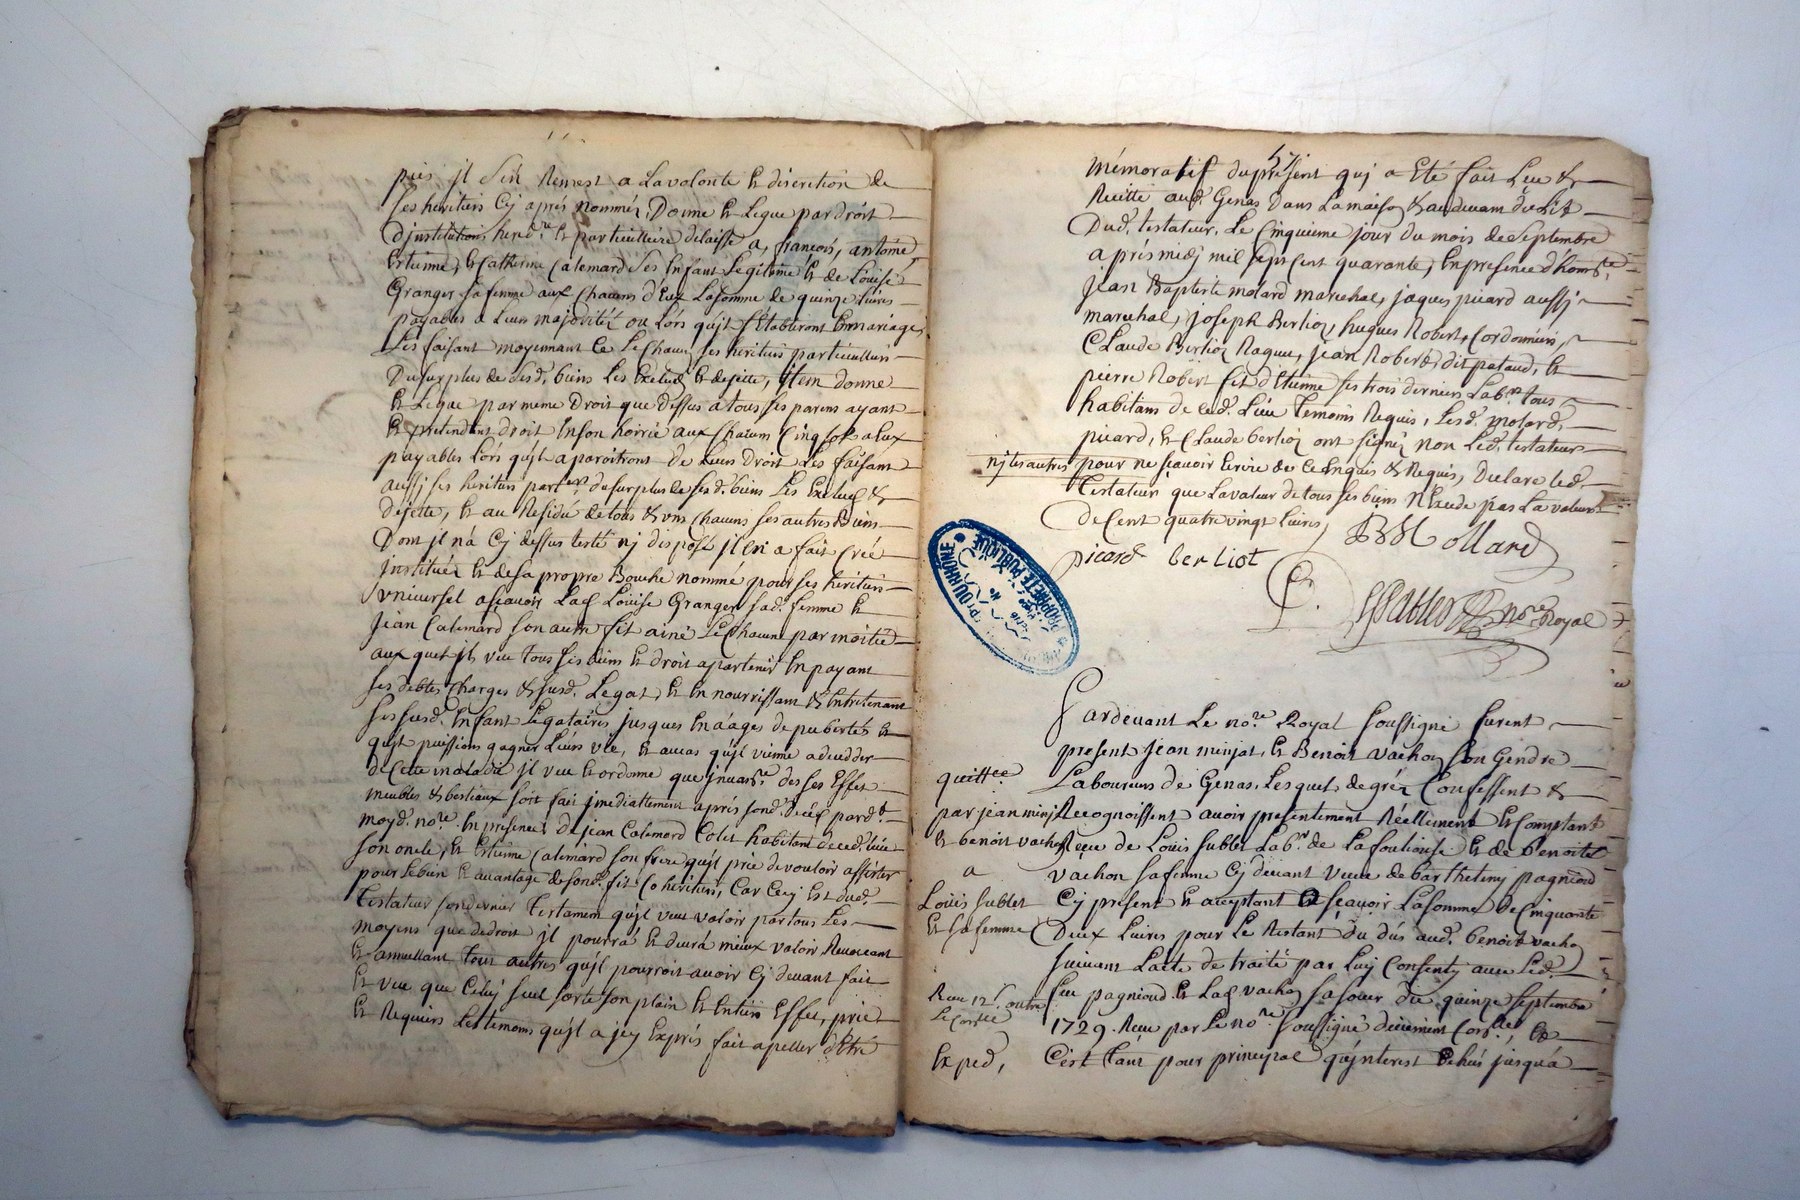 puis jl s'en remest a la volonté et discretion de
ses heritiers cy aprés nommés, Donne et Legue par droit
d'jnstitution hered.re et particulliére delaisse a, francois, antoine,
Estienne, et Catherine Calemard ses Enfant Legitime et de Louise
Granger sa femme aux Chacuns d'Eux La somme de quinze Livres
payables a Leurs majorités ou Lors qujl s'Etabliront En mariage,
Les faisant moyennant Ce Le Chacun ses heritiers particulliers
Du surplus de sesd. biens Les Exclud et dejette, jtem donne
et Legue par meme Droit que dessus a tous ses parens ayant
et pretendant droit En son hoirie aux Chacun Cinq sols a Eux
payables Lors qujl aparoitrons de Leurs Droit Les faisant
aussj ses heritiers part.ers du surplus de sesd. biens Les Exclud &
dejette, et au Residu de tous & uns Chacuns ses autres Biens
Dont jl n'a Cy dessus testé nj disposé jl En a fait Créé
jnstitués et de sa propre Bouche nommé pour ses heritiers
universel a scavoir Lad. Louise Granger sad. femme et
Jean Calemard son autre fil ainé Le Chacun par moitié
aux quel jl veu tous ses biens et droit apartenir En payant
ses debtes Charges & susd. Legat, et En nourrissant & Entretenant
ses susd. Enfant Legataires jusques En a'ages de pubertés et
qujl puissions gagner Leurs vie, et au cas qujl vienne a deceder
de Cette maladie jl veu et ordonne que jnuant.re des ses Effet
meubles & bestiaux soit fait jmediattement aprés son d. Decés pard.t
moyd. no.re En presence de jean Calemard Colet habitant de ced. Lieu
son oncle, et Estienne Calemard son frere qujl prie de vouloir assister
pour Le bien et avantage de sond. fil & Coheritiers, Car Cecy Est dud.
Testateur son dernier Testament qujl veu valoir par tous Les
moyens que de droit jl pourrá et devrá mieux valoir Revocant
et annullant tous autres qujl pourroit avoir Cy devant fait
et veu que Celuj seul sorte son plain et Entier Effet, prié
et Requiers Les temoins qujl a jcy Exprés fait apeller d'Etre
57
mémoratif du présent quj a Eté fait Leu &
Recitté aud. Genas Dans La maison & au devant du Lit
Dud. testateur, Le Cinquieme jour du mois de Septembre
aprés midj mil sept cent quarante, En presence d'honn.te
jean Baptiste molard marechal, jaques picard aussj
marechal, joseph Berlioz, hugues Robert, Cordonniers,
Claude Berlioz Naguen, jean Robert, dit pataud, et
pierre Robert fil d'Etienne ses trois derniers Lab.rs tous
habitans de ced. Lieu temoins Requis, Lesd. molard,
picard, et Claude berlioz ont signés non Led. testateur
nj les autres pour ne scavoir Ecrire de Ce Enquis & Requis, Declare Led.
testateur que La valeur de tous ses biens N'Excede pas La valeur
de Cent quatre vingt Livres, JB Mollard
picard berliot
Sublet no.re Royal
Pardevant Le no.re Royal soussigné furent
present jean minjat, et Benoit vachon son Gendre
Laboureurs de Genas. Lesquel de grés Confessent &
Recognoissent avoir presentement Réellement et Comptant
Reçu de Louis sublet Lab.r de La fouliouse et de benoite
vachon sa femme Cy devant veuve de barthelemy pagnioud
Cy present et acceptant a scavoir La somme de Cinquante
Deux Livres pour Le Restant du dus aud. benoit vachon
suivant L'acte de traité par Luj Consenty avec Led.
feu pagnioud et Lad. vachon sa soeur du quinze septembre
1729. Recu par Le no.re soussigné deuement Con.llé, &
C'est tant pour principal qu'jnterest Echeus jusqu'a
quittce
par jean minjat
et benoit vachon
a
Louis sublet
et sa femme
Recu 12 s. outre
Le Con.lle
Exped,
PROPRIÉTÉ PUBLIQUE
DU RHONE